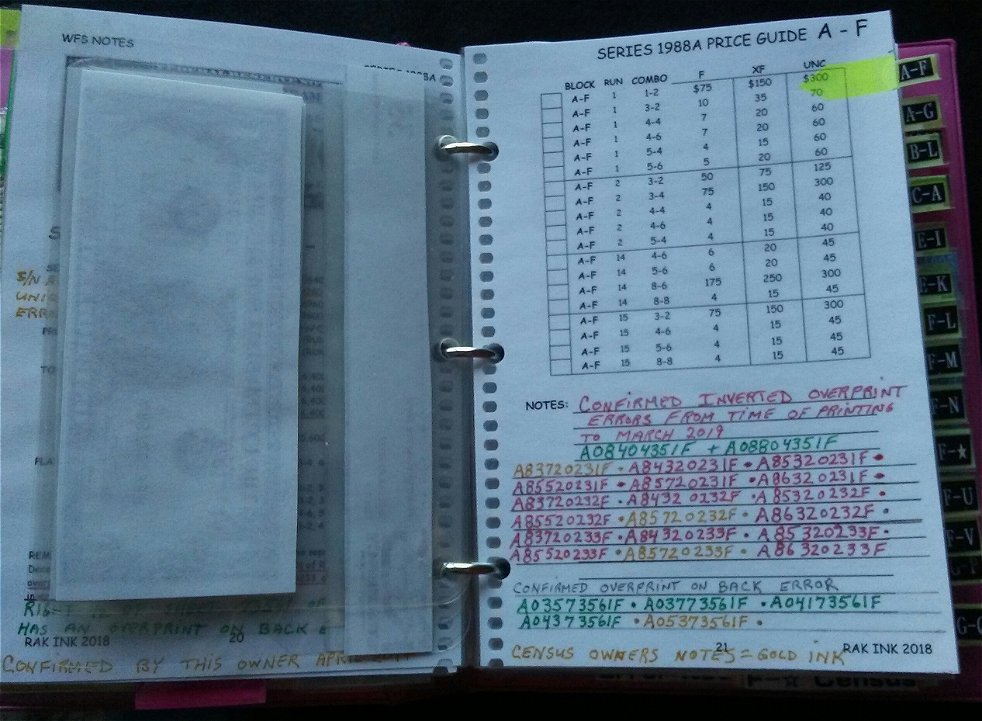 WFS NOTES
S/N
REM
HAS AN OVERPRINT ON BACK
RAK INK 2018
20
CONFIRMED BY THIS OWNER
SERIES 1988A PRICE GUIDE A - F
BLOCK RUN COMBO F XF UNC
A-F 1 1-2 $75 $150 $300
A-F 1 3-2 10 35 70
A-F 1 4-4 7 20 60
A-F 1 4-6 7 20 60
A-F 1 5-4 4 15 60
A-F 1 5-6 5 20 60
A-F 2 3-2 50 75 125
A-F 2 3-4 75 150 300
A-F 2 4-4 4 15 40
A-F 2 4-6 4 15 40
A-F 2 5-4 4 15 40
A-F 14 4-6 6 20 45
A-F 14 5-6 6 20 45
A-F 14 8-6 175 250 300
A-F 14 8-8 4 15 45
A-F 15 3-2 75 150 300
A-F 15 4-6 4 15 45
A-F 15 5-6 4 15 45
A-F 15 8-8 4 15 45
NOTES: CONFIRMED INVERTED OVERPRINT
ERRORS FROM TIME OF PRINTING
TO MARCH 2019
A08404351F + A08804351F
A83720231F • A84320231F • A85320231F •
A85520231F • A85720231F • A86320231F •
A83720232F • A84320232F • A85320232F •
A85520232F • A85720232F • A86320232F •
A83720233F • A84320233F • A85320233F •
A85520233F • A85720233F • A86320233F
CONFIRMED OVERPRINT ON BACK ERROR
A03573561F • A03773561F • A04173561F
A04373561F • A05373561F •
CENSUS OWNERS NOTES = GOLD INK
21
RAK INK 2018
A-F
A-G
B-L
C-A
E-I
F-K
F-L
F-M
F-N
F-★
F-U
F-V
G-G
F-☆ Census